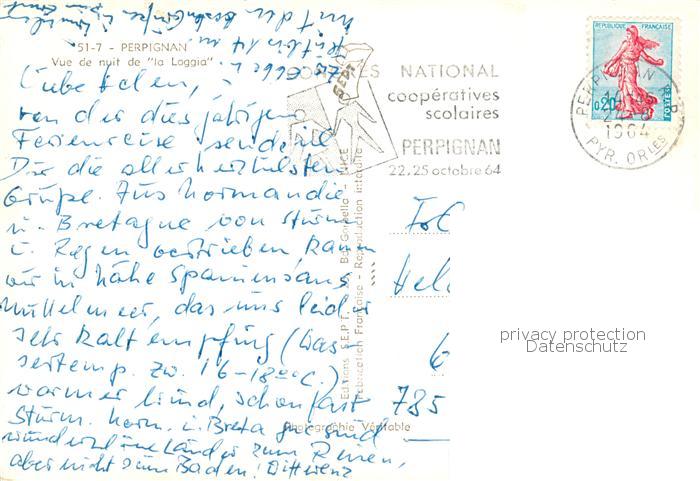 51-7 - PERPIGNAN
Vue de nuit de "la Loggia"
Liebe Helen,
von der diesjährigen
Ferienreise sende ich
Dir die allerherzlichsten
Grüße. Aus Normandie
u. Bretagne von Sturm
u. Regen vertrieben, kamen
wir in Nähe Spaniens ans
Mittelmeer, das uns leider
sehr kalt empfing (Was-
sertemp. zw. 16-18° C.)
warmer Wind, schon fast
Sturm. Norm. u. Bretagne sind
wundervolle Länder zum Reisen,
aber nicht zum Baden! Differenz
NATIONAL
coopératives
scolaires
PERPIGNAN
22.25 octobre 64
REPUBLIQUE FRANÇAISE
0,20
POSTES
PERPIGNAN
1964
PYR. ORLES
Editions S.E.P.T.
NICE
Fabrication Française - Reproduction interdite
Photographie Véritable
Frl
Hel
6
785
privacy protection
Datenschutz